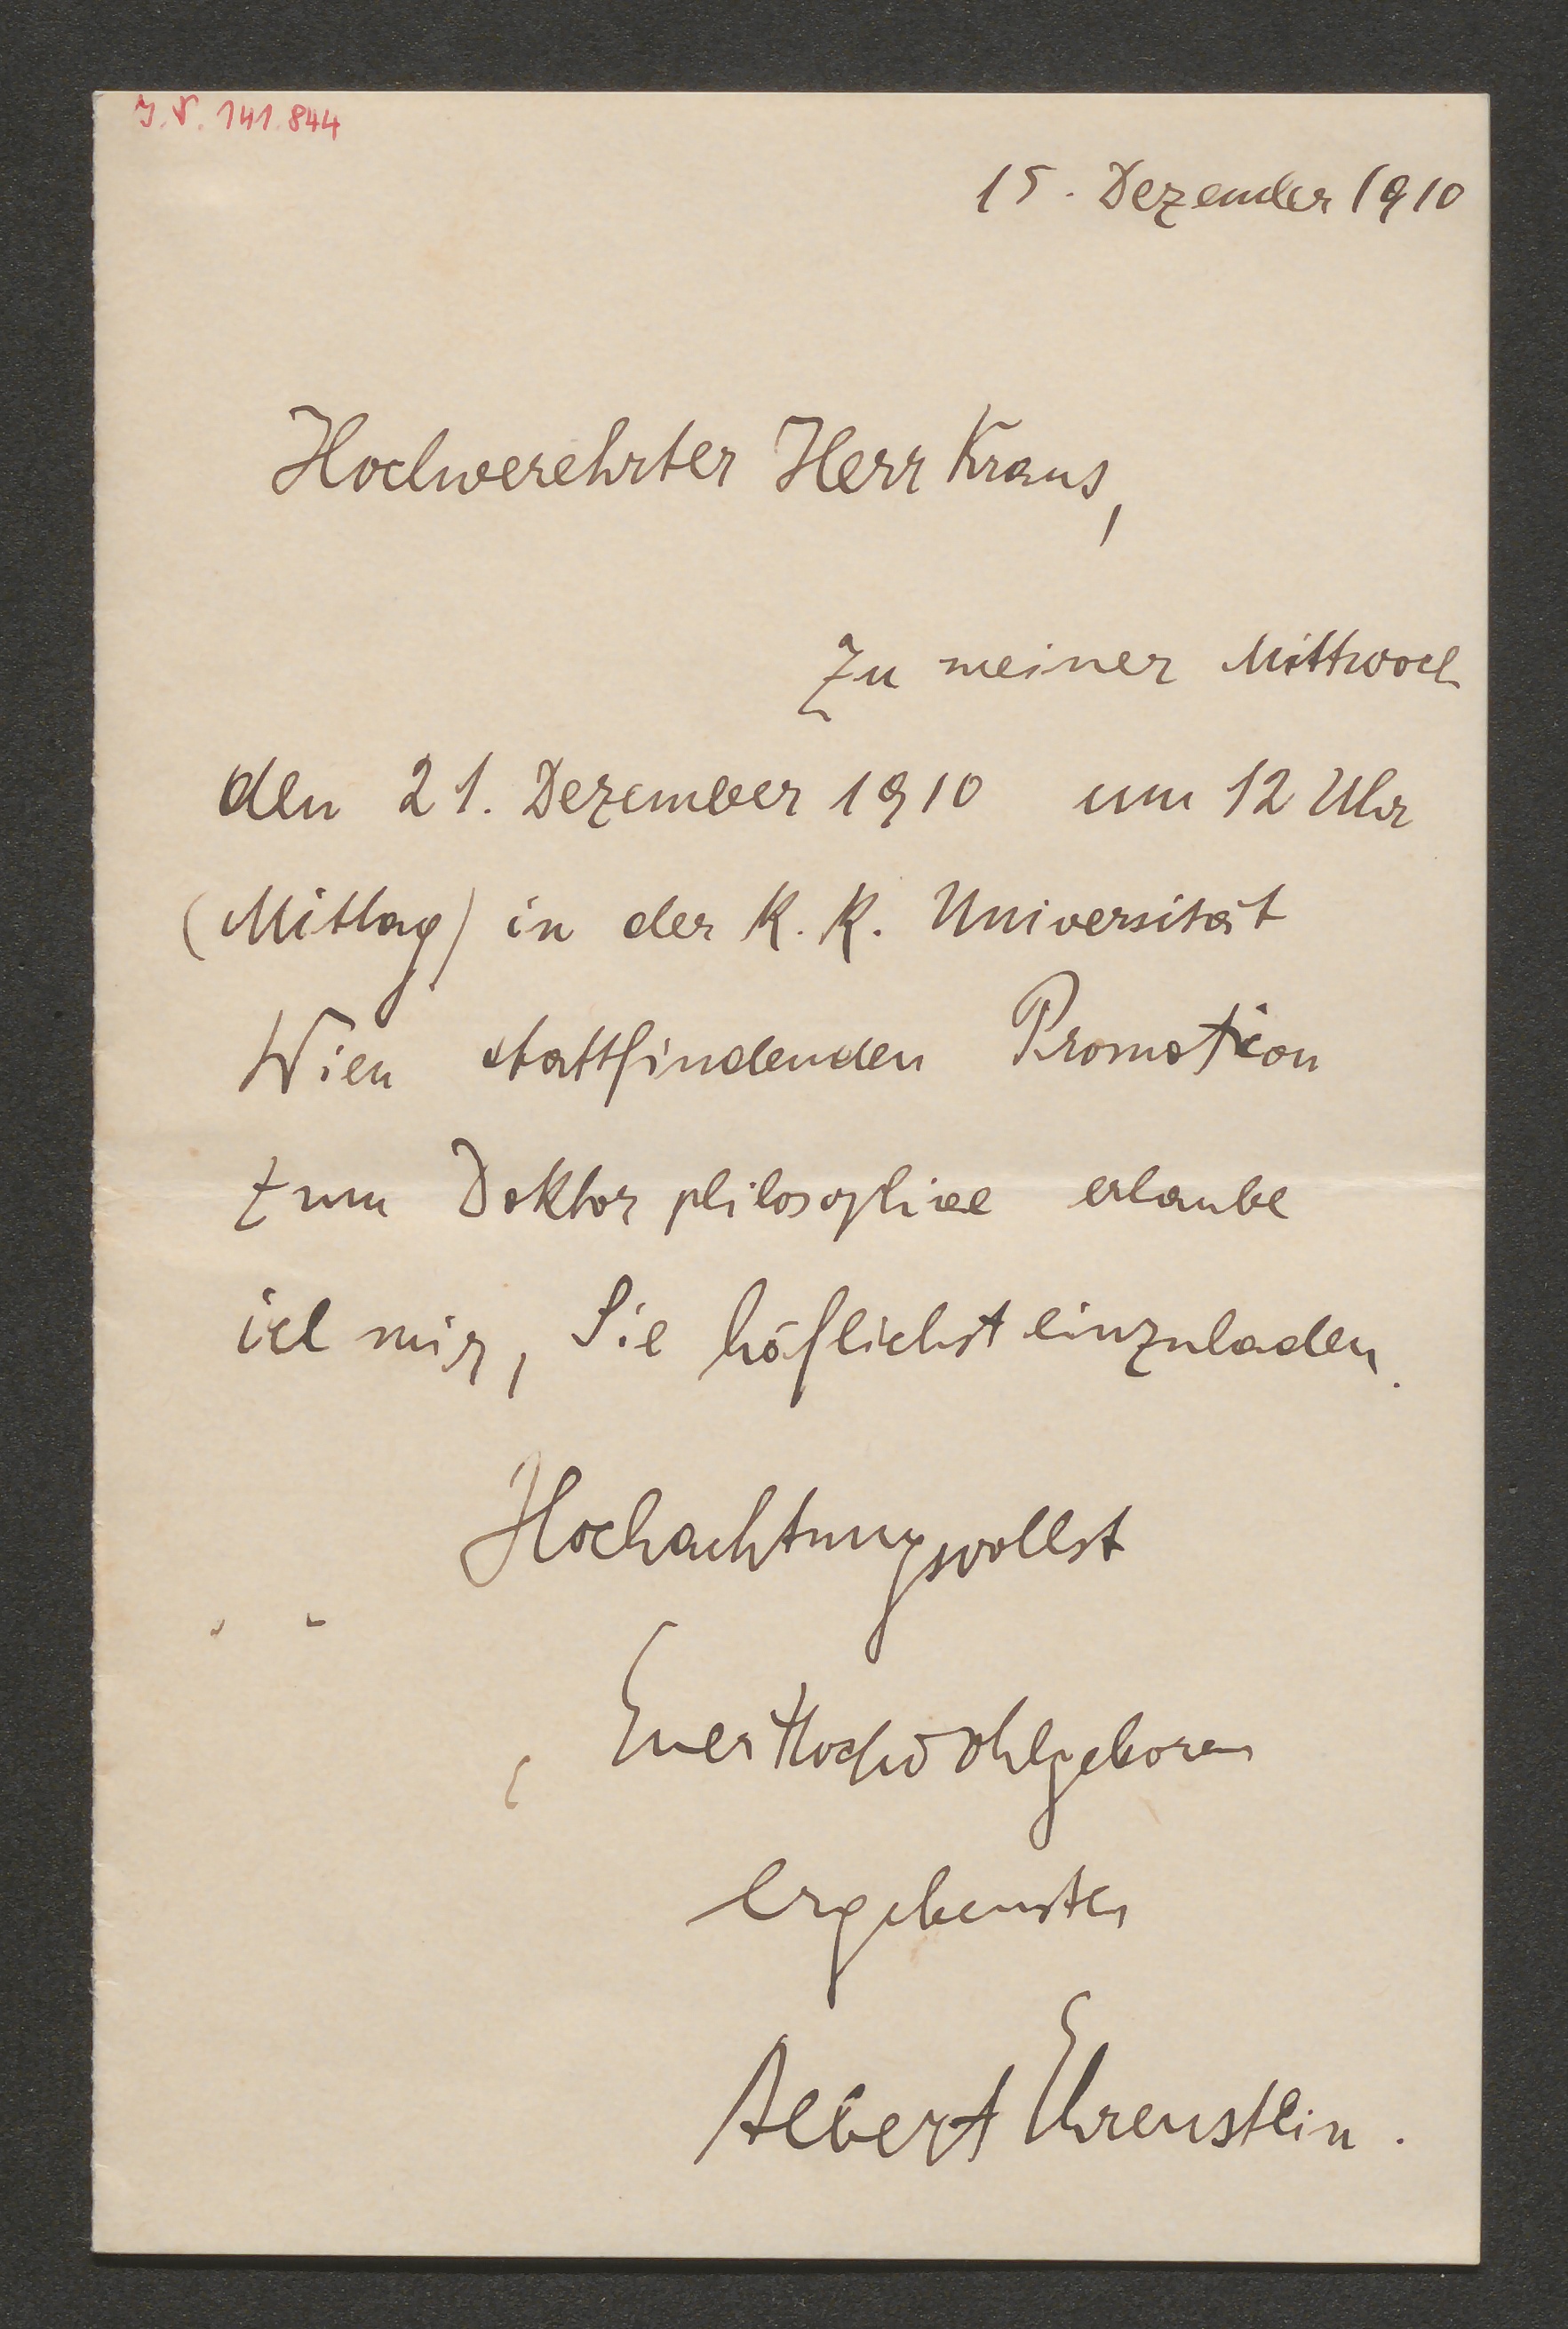 J.N. 141.844
15. Dezember 1910
Hochverehrter Herr Kraus,
Zu meiner Mittwoch
den 21. Dezember 1910 um 12 Uhr
(Mittag) in der K. K. Universität
Wien stattfindenden Promotion
zum Doktor philosophiae erlaube
ich mir, Sie höflichst einzuladen.
Hochachtungsvollst
Euer Hochwohlgeboren
ergebenster
Albert Ehrenstein.